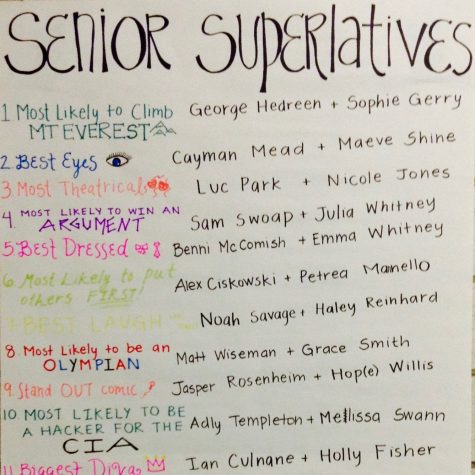 SENIOR SUPERLATIVES
1. Most Likely to Climb George Hedreen + Sophie Gerry
MT EVEREST
2. Best Eyes Cayman Mead + Maeve Shine
3. Most Theatrical Luc Park + Nicole Jones
4. MOST LIKELY TO WIN AN Sam Swoap + Julia Whitney
ARGUMENT
5. Best Dressed Benni McComish + Emma Whitney
6. Most Likely to put Alex Ciskowski + Petrea Mannello
others FIRST!
7. BEST LAUGH Noah Savage + Haley Reinhard
8. Most Likely to be an Matt Wiseman + Grace Smith
OLYMPIAN
9. Stand OUT comic Jasper Rosenheim + Hop(e) Willis
10. MOST LIKELY TO BE Adly Templeton + Mellissa Swann
A HACKER FOR THE
CIA
11. Biggest Diva Ian Culnane + Holly Fisher